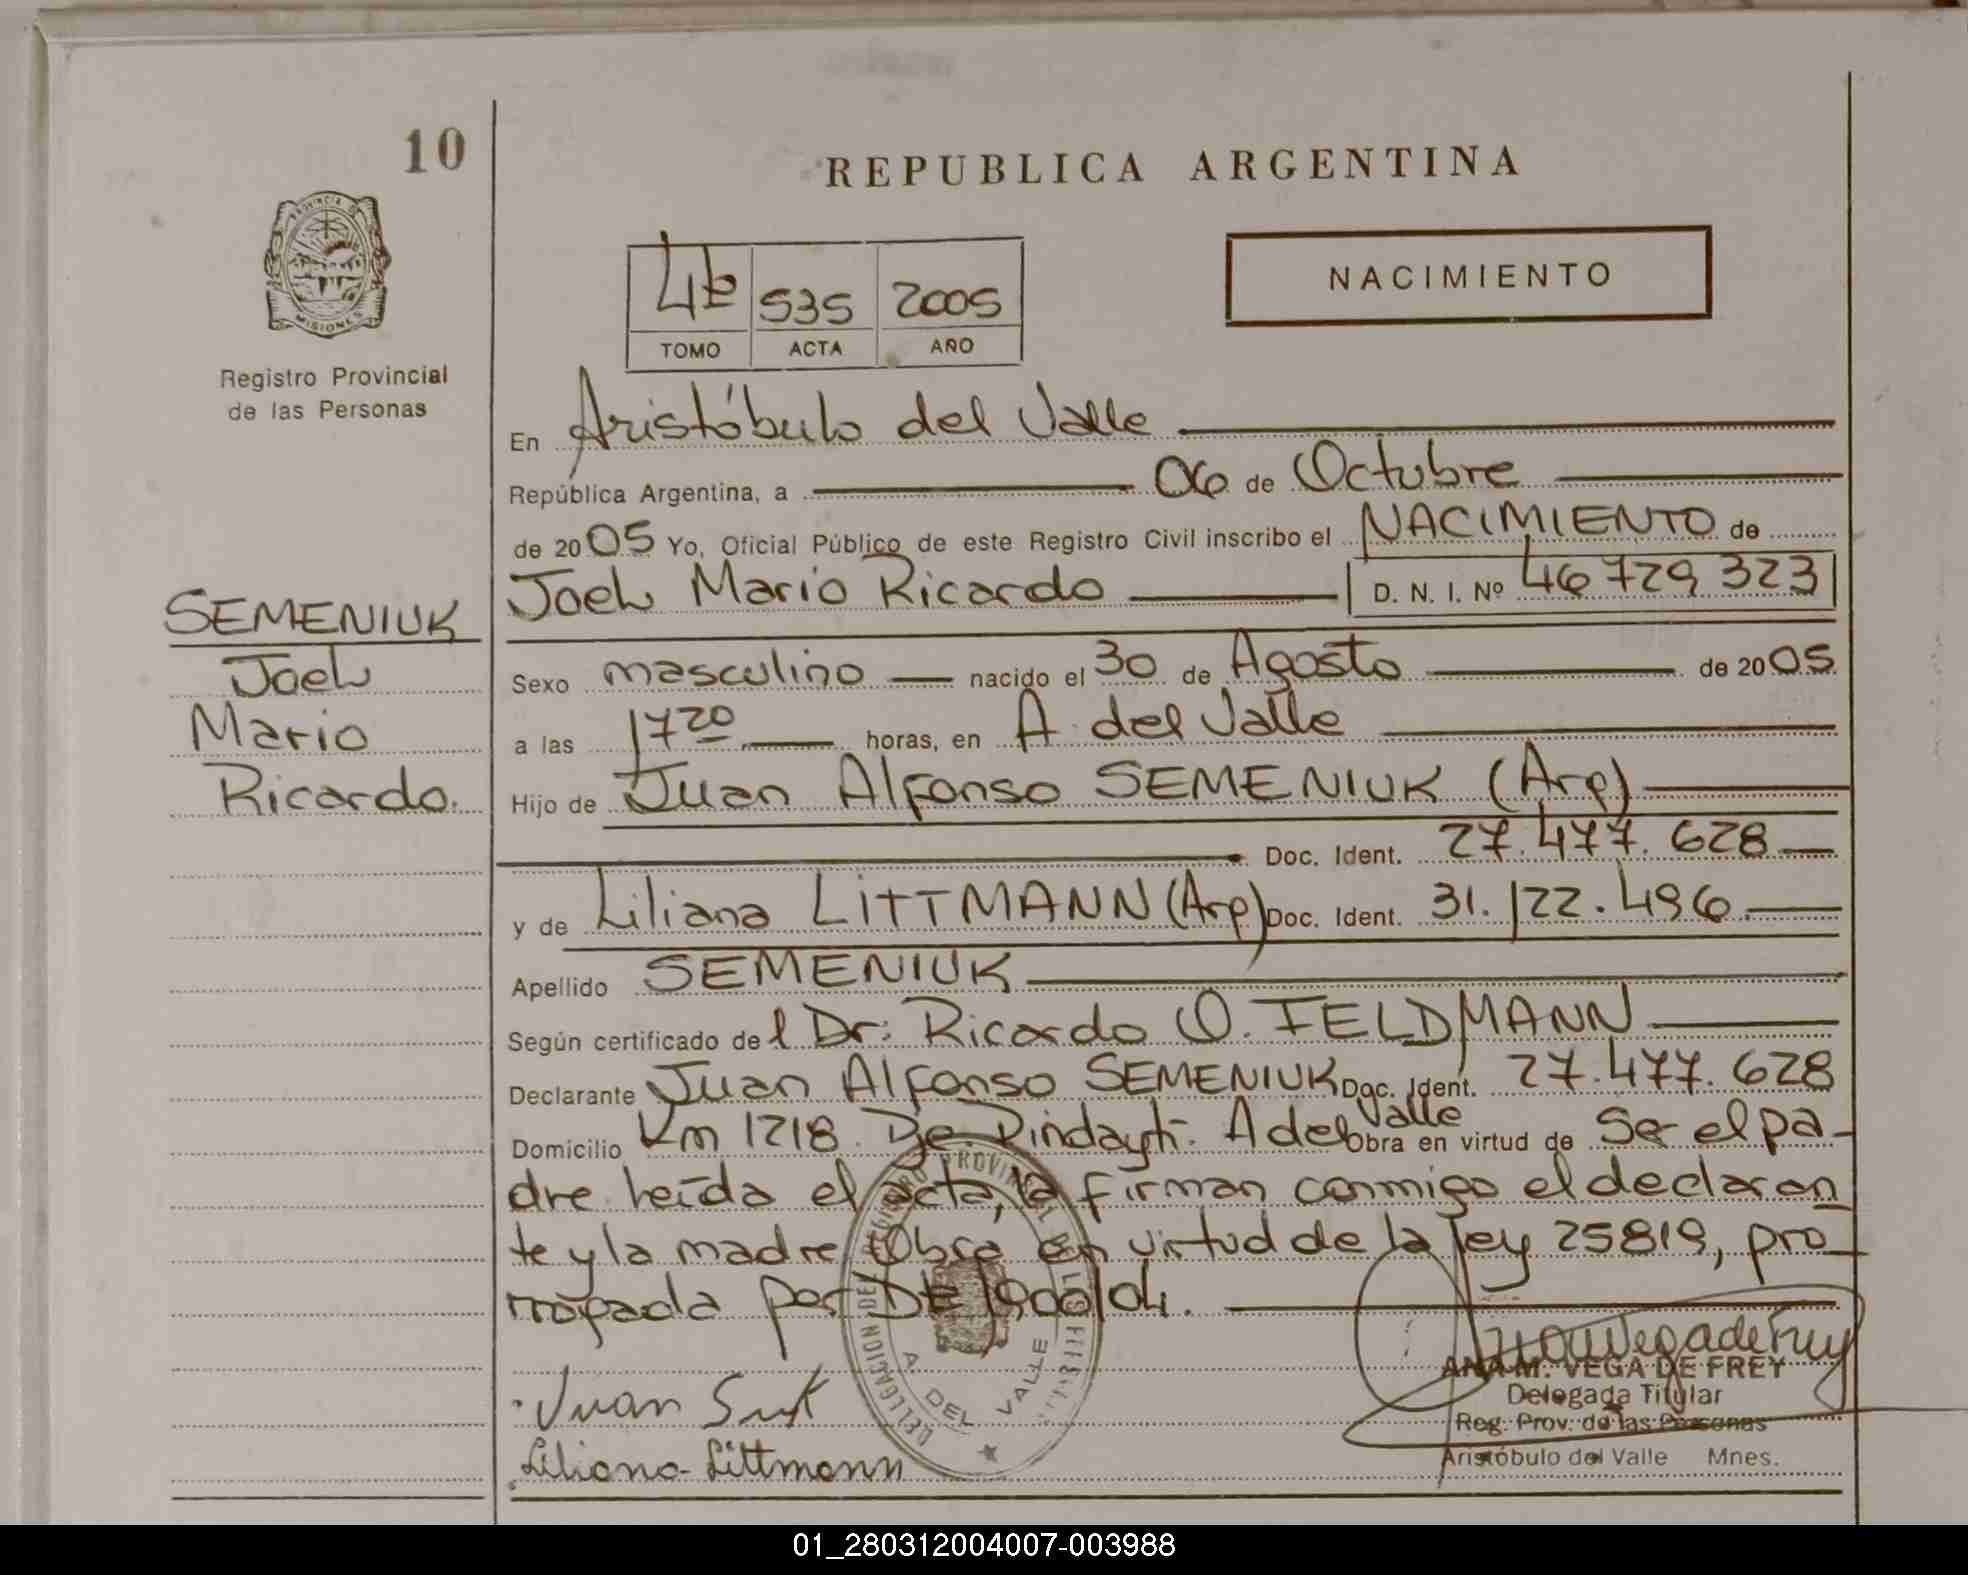 10
REPUBLICA ARGENTINA
PROVINCIA DE
MISIONES
Registro Provincial
de las Personas
4b 535 2005
TOMO ACTA AÑO
NACIMIENTO
En Aristóbulo del Valle
República Argentina, a 06 de Octubre
de 2005 Yo, Oficial Público de este Registro Civil inscribo el NACIMIENTO de
Joel Mario Ricardo D. N. I. Nº 46729323
SEMENIUK
Joel
Mario
Ricardo.
Sexo masculino nacido el 30 de Agosto de 2005
a las 17 20 horas, en A. del Valle
Hijo de Juan Alfonso SEMENIUK (Arg)
Doc. Ident. 27.477.628
y de Liliana LITTMANN (Arg) Doc. Ident. 31.122.496
Apellido SEMENIUK
Según certificado del Dr: Ricardo O. FELDMANN
Declarante Juan Alfonso SEMENIUK Doc. Ident. 27.477.628
Domicilio Km 1218. Pindayti. A del Valle Obra en virtud de Ser el pa-
dre leída el acta, la firman conmigo el declaran
te y la madre Obra en virtud de la ley 25819, pro
rrogada por
Juan
Liliana Littmann
DELEGACION DEL REGISTRO PROVINCIAL DE LAS PERSONAS
A. DEL VALLE
ANA M. VEGA DE FREY
Delegada Titular
Reg. Prov. de las Personas
Aristóbulo del Valle Mnes.
01_280312004007-003988